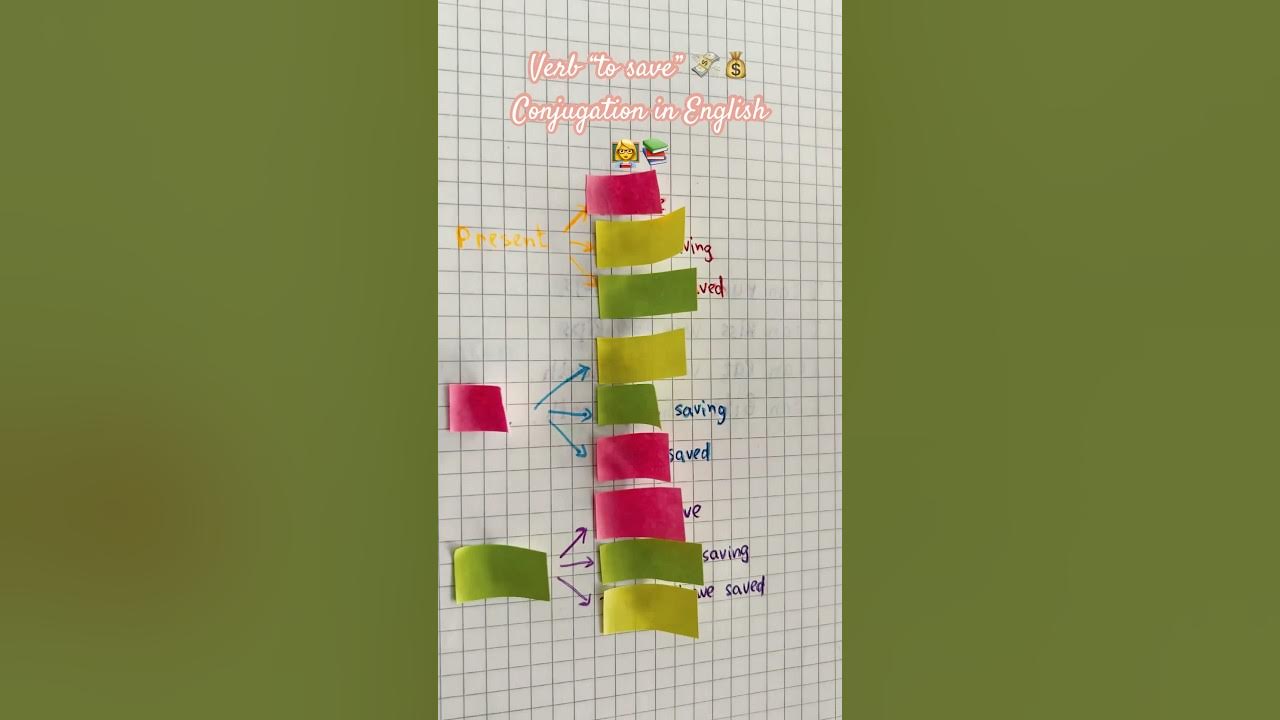 Verb “to save” 💸💰
Conjugation in English
👩‍🏫📚
Present
ving
ved
saving
saved
ve
saving
ve saved